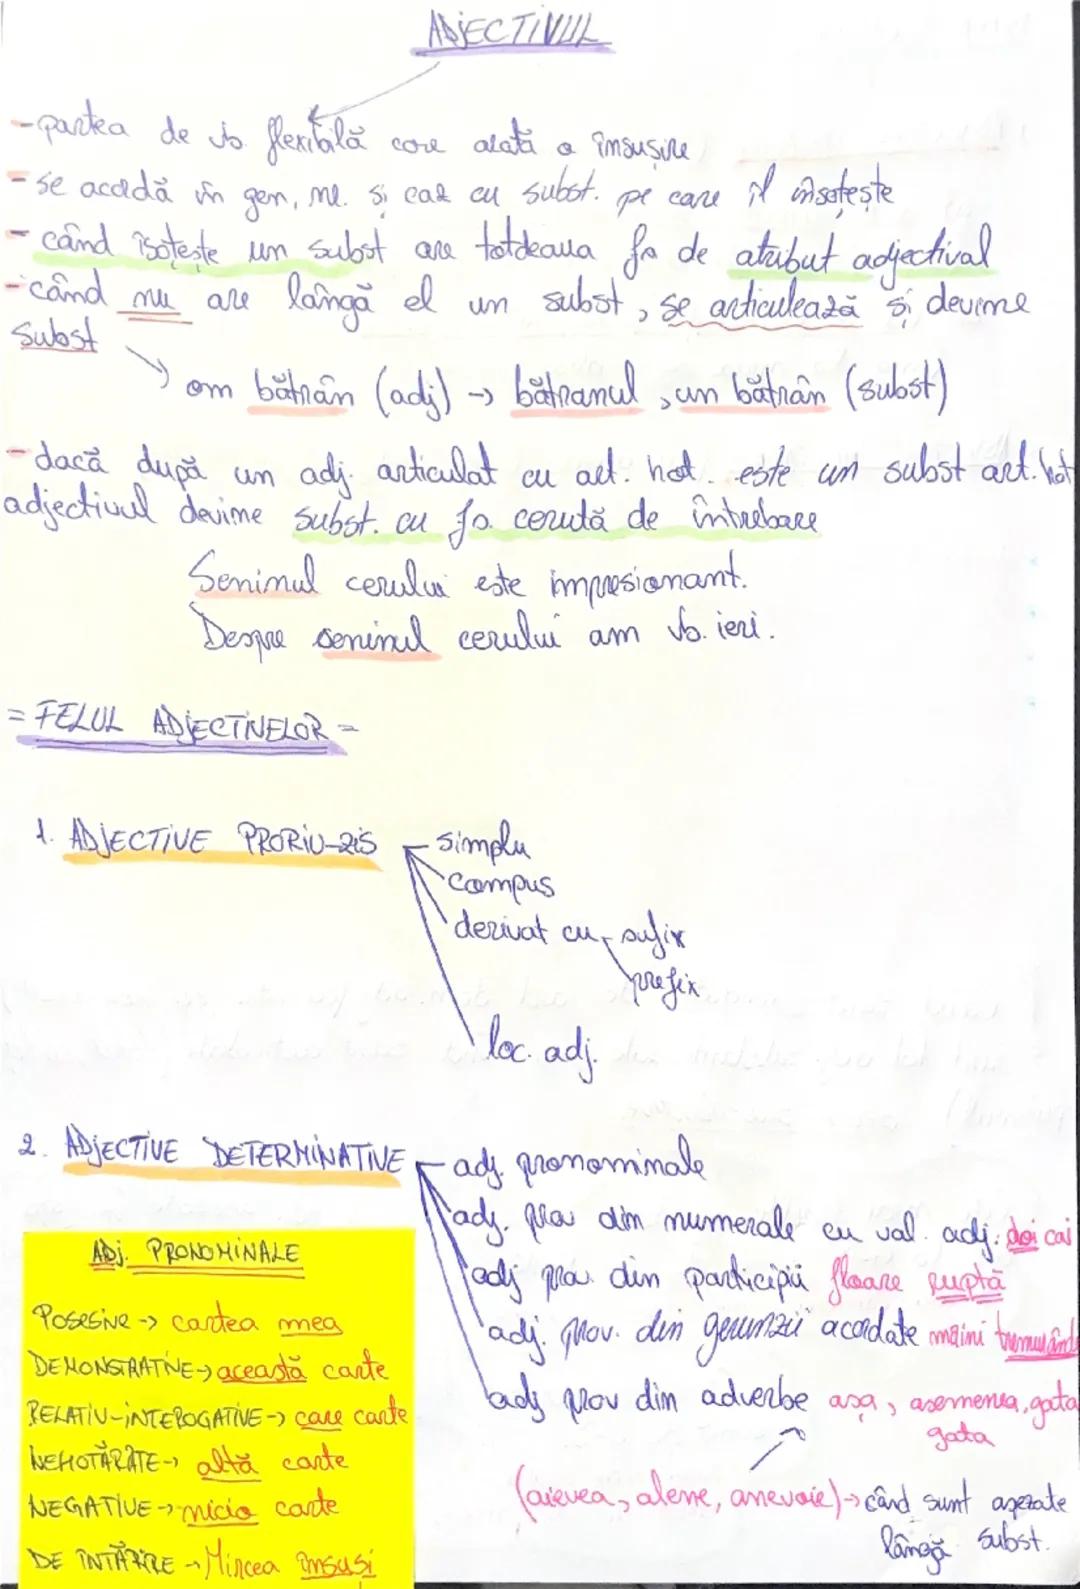 ADJECTIVUL
- partea de vb. flexibilă care arată o însușire
- se acordă în gen, nr. și caz cu subst. pe care îl însoțește
- când îsoțește un subst are totdeauna fs de atribut adjectival
- când nu are lângă el un subst, se articulează și devine
subst
om bătrân (adj) → bătranul, un bătrân (subst)
- dacă după un adj. articulat cu art. hot. este un subst art. hot
adjectivul devine subst. cu fs. cerută de întrebare
Seninul cerului este impresionant.
Despre seninul cerului am vb. ieri.
= FELUL ADJECTIVELOR =
1. ADJECTIVE PRORIU-ZIS
simplu
compus
derivat cu sufix
prefix
loc. adj.
2. ADJECTIVE DETERMINATIVE
adj. pronominale
adj. prov din numerale cu val. adj. doi cai
adj prov. din participii floare ruptă
adj. prov. din gerunzii acordate mâini tremurând
adj prov din adverbe așa, asemenea, gata
gata
(aievea, alene, anevoie) → când sunt așezate
lângă subst.
ADJ. PRONOMINALE
POSESIVE → cartea mea
DEMONSTRATIVE → această carte
RELATIV-INTEROGATIVE → care carte
NEHOTĂRÂTE → altă carte
NEGATIVE → nicio carte
DE ÎNTĂRIRE → Mircea însuși